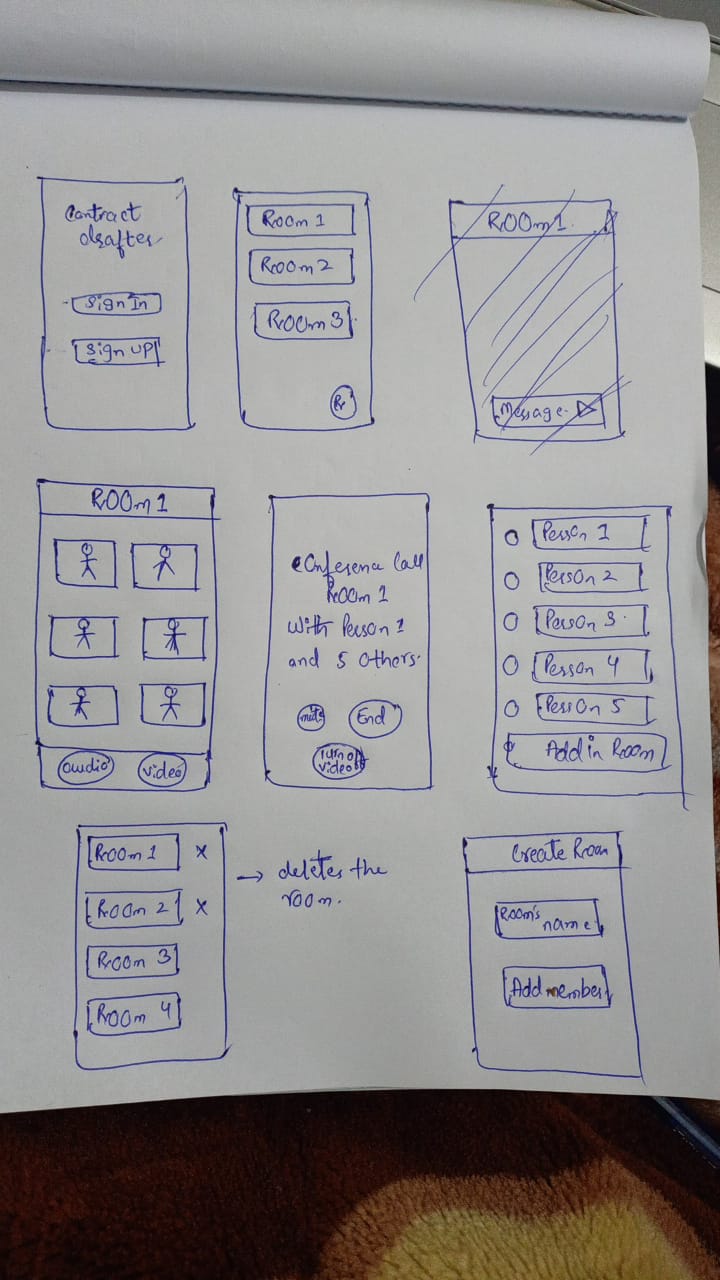 Contract
drafter
Sign In
Sign UP
Room 1
Room 2
Room 3
R
Room 1
Message
Room 1
audio
video
Conference Call
Room 1
with Person 1
and 5 others.
mute
End
Turn off
video
Person 1
Person 2
Person 3
Person 4
Person 5
Add in Room
Room 1 x
Room 2 x
Room 3
Room 4
→ deletes the
room.
Create Room
Room's
name
Add member